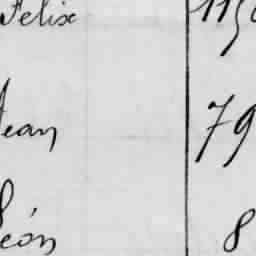 Felix 115
Jean 79
Léon 8